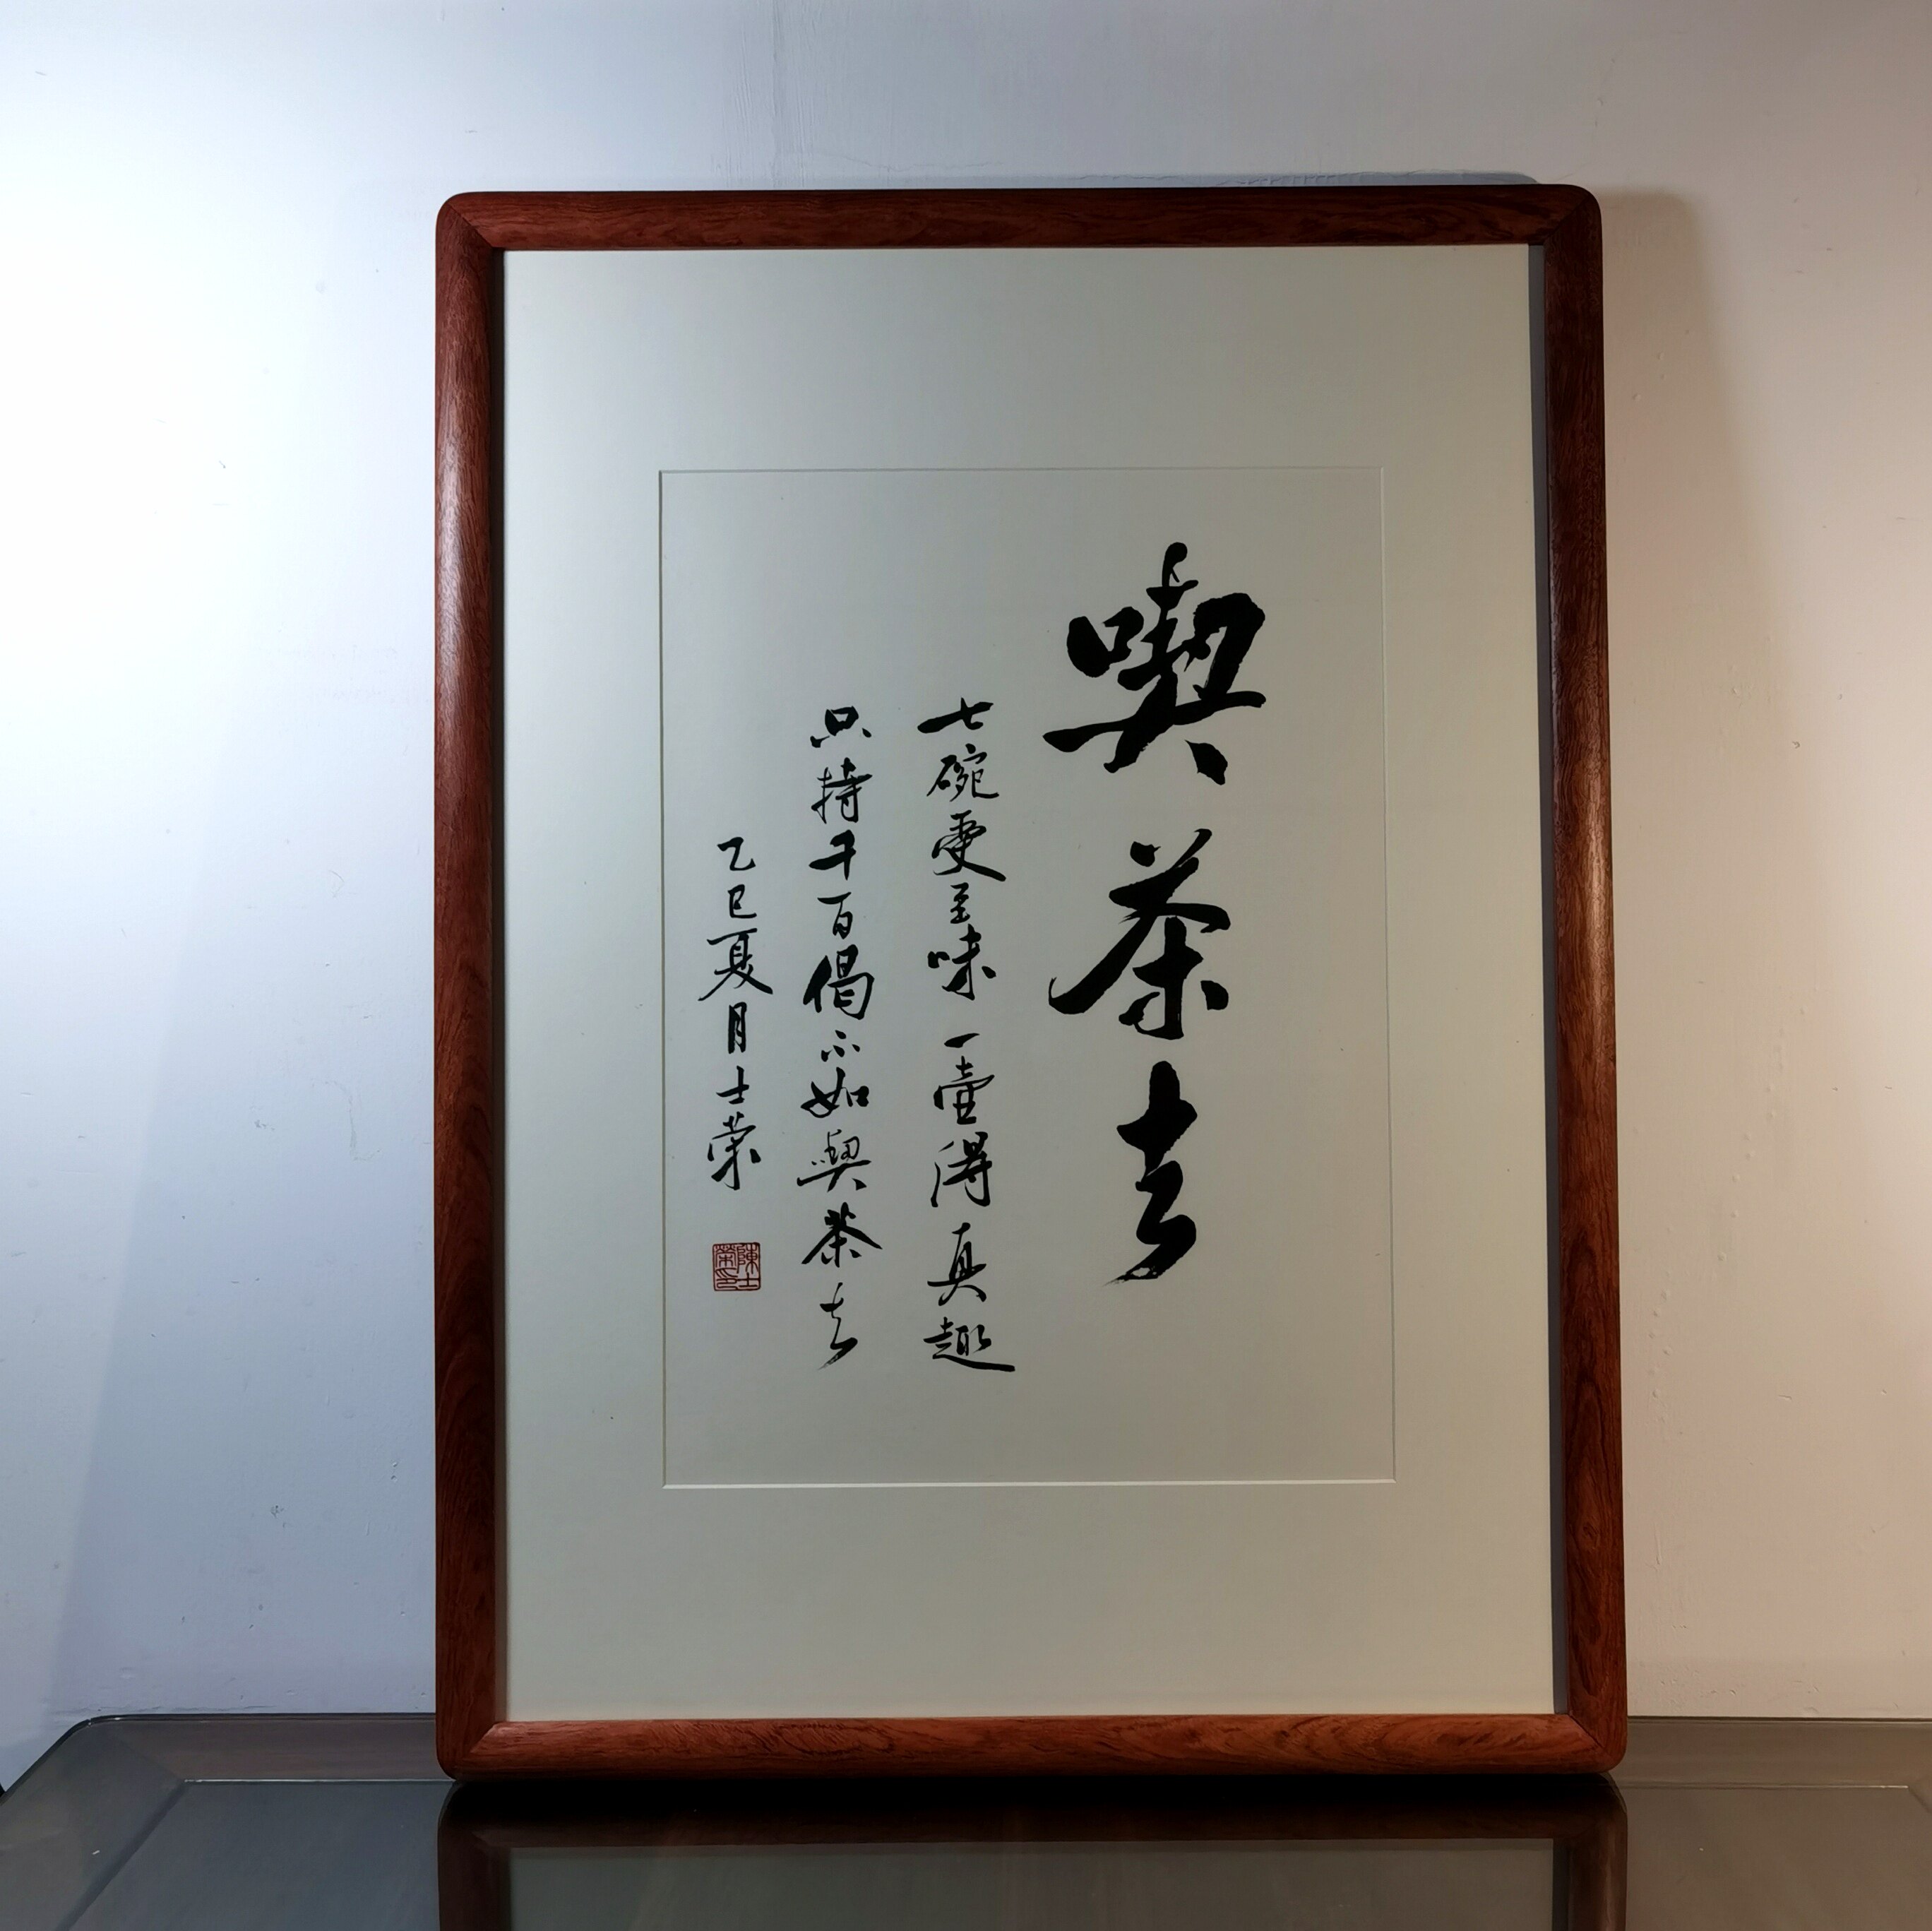 喫茶去
七碗受至味一壺得真趣
只持千百偈不如喫茶去
乙巳夏月士荣
陳士榮印